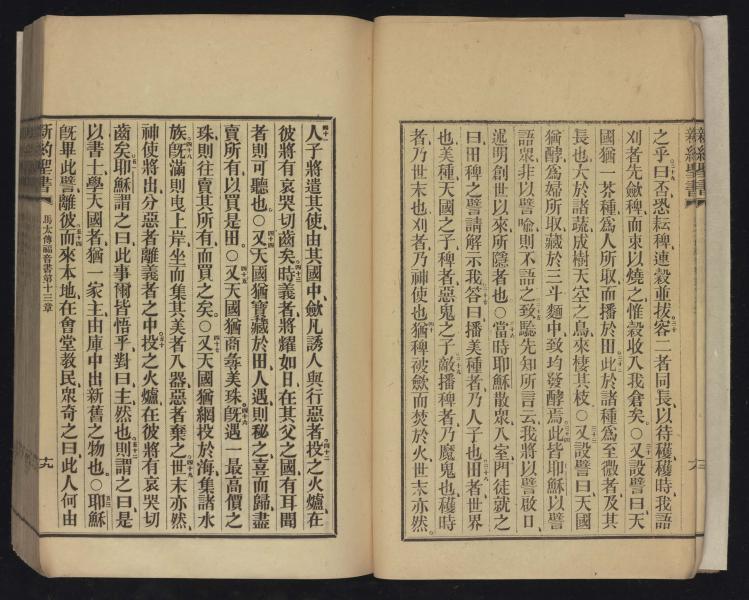 新約聖書
之乎曰否恐耘稗連穀並拔容二者同長以待穫穫時我語
刈者先斂稗而束以燒之惟穀收入我倉矣○又設譬曰天
國猶一芥種爲人所取而播於田此於諸種爲至微者及其
長也大於諸蔬成樹天空之鳥來棲其枝○又設譬曰天國
猶酵爲婦所取藏於三斗麵中致均發酵焉此皆耶穌以譬
語眾非以譬喻則不語之致驗先知所言云我將以譬啟口
述明創世以來所隱者也○當時耶穌散眾入室門徒就之
曰田稗之譬請解示我答曰播美種者乃人子也田者世界
也美種天國之子稗者惡鬼之子敵播稗者乃魔鬼也穫時
者乃世末也刈者乃神使也猶稗被斂而焚於火世末亦然
人子將遣其使由其國中斂凡誘人與行惡者投之火爐在
彼將有哀哭切齒矣時義者將耀如日在其父之國有耳聞
者則可聽也○又天國猶寶藏於田人遇則秘之喜而歸盡
賣所有以買是田○又天國猶商尋美珠旣遇一最高價之
珠則往賣其所有而買之矣○又天國猶網投於海集諸水
族旣滿則曳上岸坐而集其美者入器惡者棄之世末亦然
神使將出分惡者離義者之中投之火爐在彼將有哀哭切
齒矣耶穌謂之曰此事爾皆悟乎對曰主然也則謂之曰是
以書士學天國者猶一家主由庫中出新舊之物也○耶穌
旣畢此譬離彼而來本地在會堂教民眾奇之曰此人何由
新約聖書 馬太傳福音書第十三章 十九